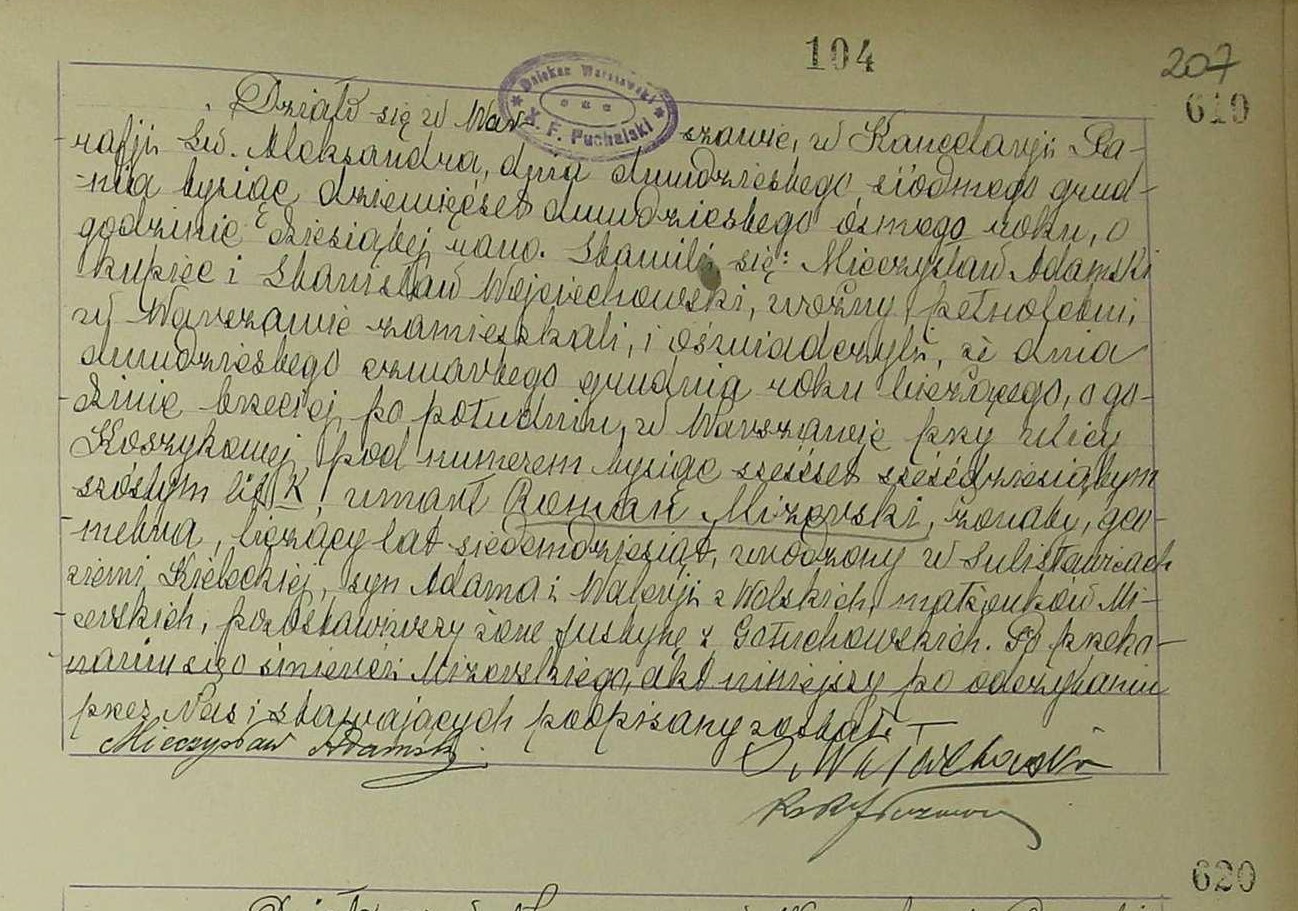 104
207
619
Dziekan Warszawski
X. F. Puchalski
Działo się w War- szawie, w Kancelaryji Pa-
rafji Św. Aleksandra, dnia dwudziestego siódmego grud-
nia tysiąc dziewięćset dwudziestego ósmego roku, o
godzinie dziesiątej rano. Stawili się: Mieczysław Adamski
kupiec i Stanisław Wojciechowski, woźny, pełnoletni,
w Warszawie zamieszkali, i oświadczyli, że dnia
dwudziestego czwartego grudnia roku bieżącego, o go-
dzinie trzeciej po południu, w Warszawie przy ulicy
Koszykowej, pod numerem tysiąc sześćset sześćdziesiątym
szóstym lit. K, umarł Roman Mizerski, żonaty, geo-
metra, liczący lat siedemdziesiąt, urodzony w Sulisławicach
ziemi Kieleckiej, syn Adama i Walerji z Wolskich, małżonków Mi-
zerskich, pozostawiwszy żonę Justynę z Gołuchowskich. Po przeko-
naniu się o śmierci Mizerskiego, akt niniejszy po odczytaniu
przez Nas i stawających podpisany został. —
Mieczysław Adamski.
S. Wojciechowski
620